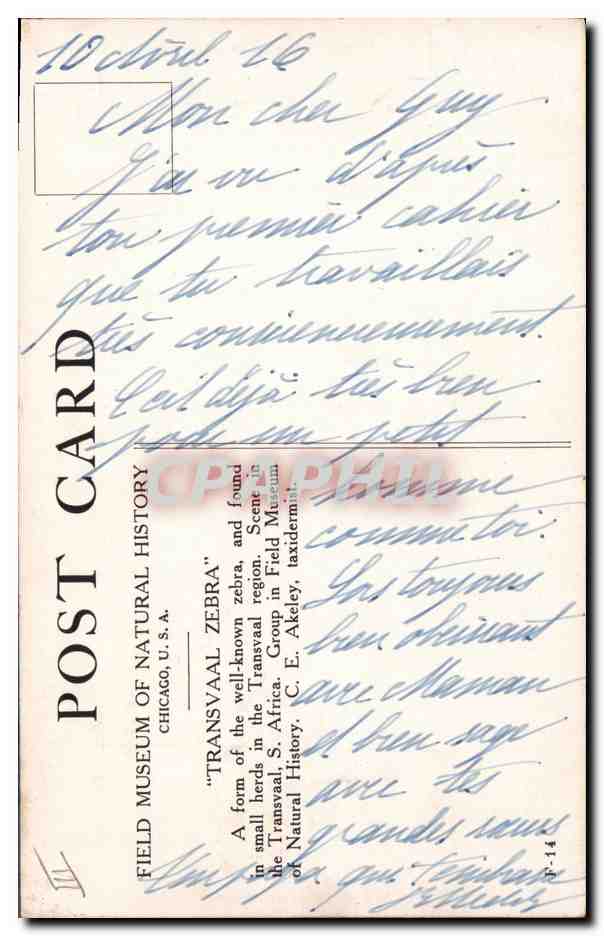 10 Avril 16
Mon cher Guy
J'ai vu d'après
ton premier cahier
que tu travaillais
très
C'est déjà très bien
pour un petit
homme
comme toi.
Sois toujours
bien obéissant
avec Maman
et bien sage
avec tes
grandes sœurs
Ton papa qui t'embrasse
POST CARD
FIELD MUSEUM OF NATURAL HISTORY
CHICAGO, U. S. A.
"TRANSVAAL ZEBRA"
A form of the well-known zebra, and found
in small herds in the Transvaal region. Scene in
the Transvaal, S. Africa. Group in Field Museum
of Natural History. C. E. Akeley, taxidermist.
F-14
III
CPAPHIL